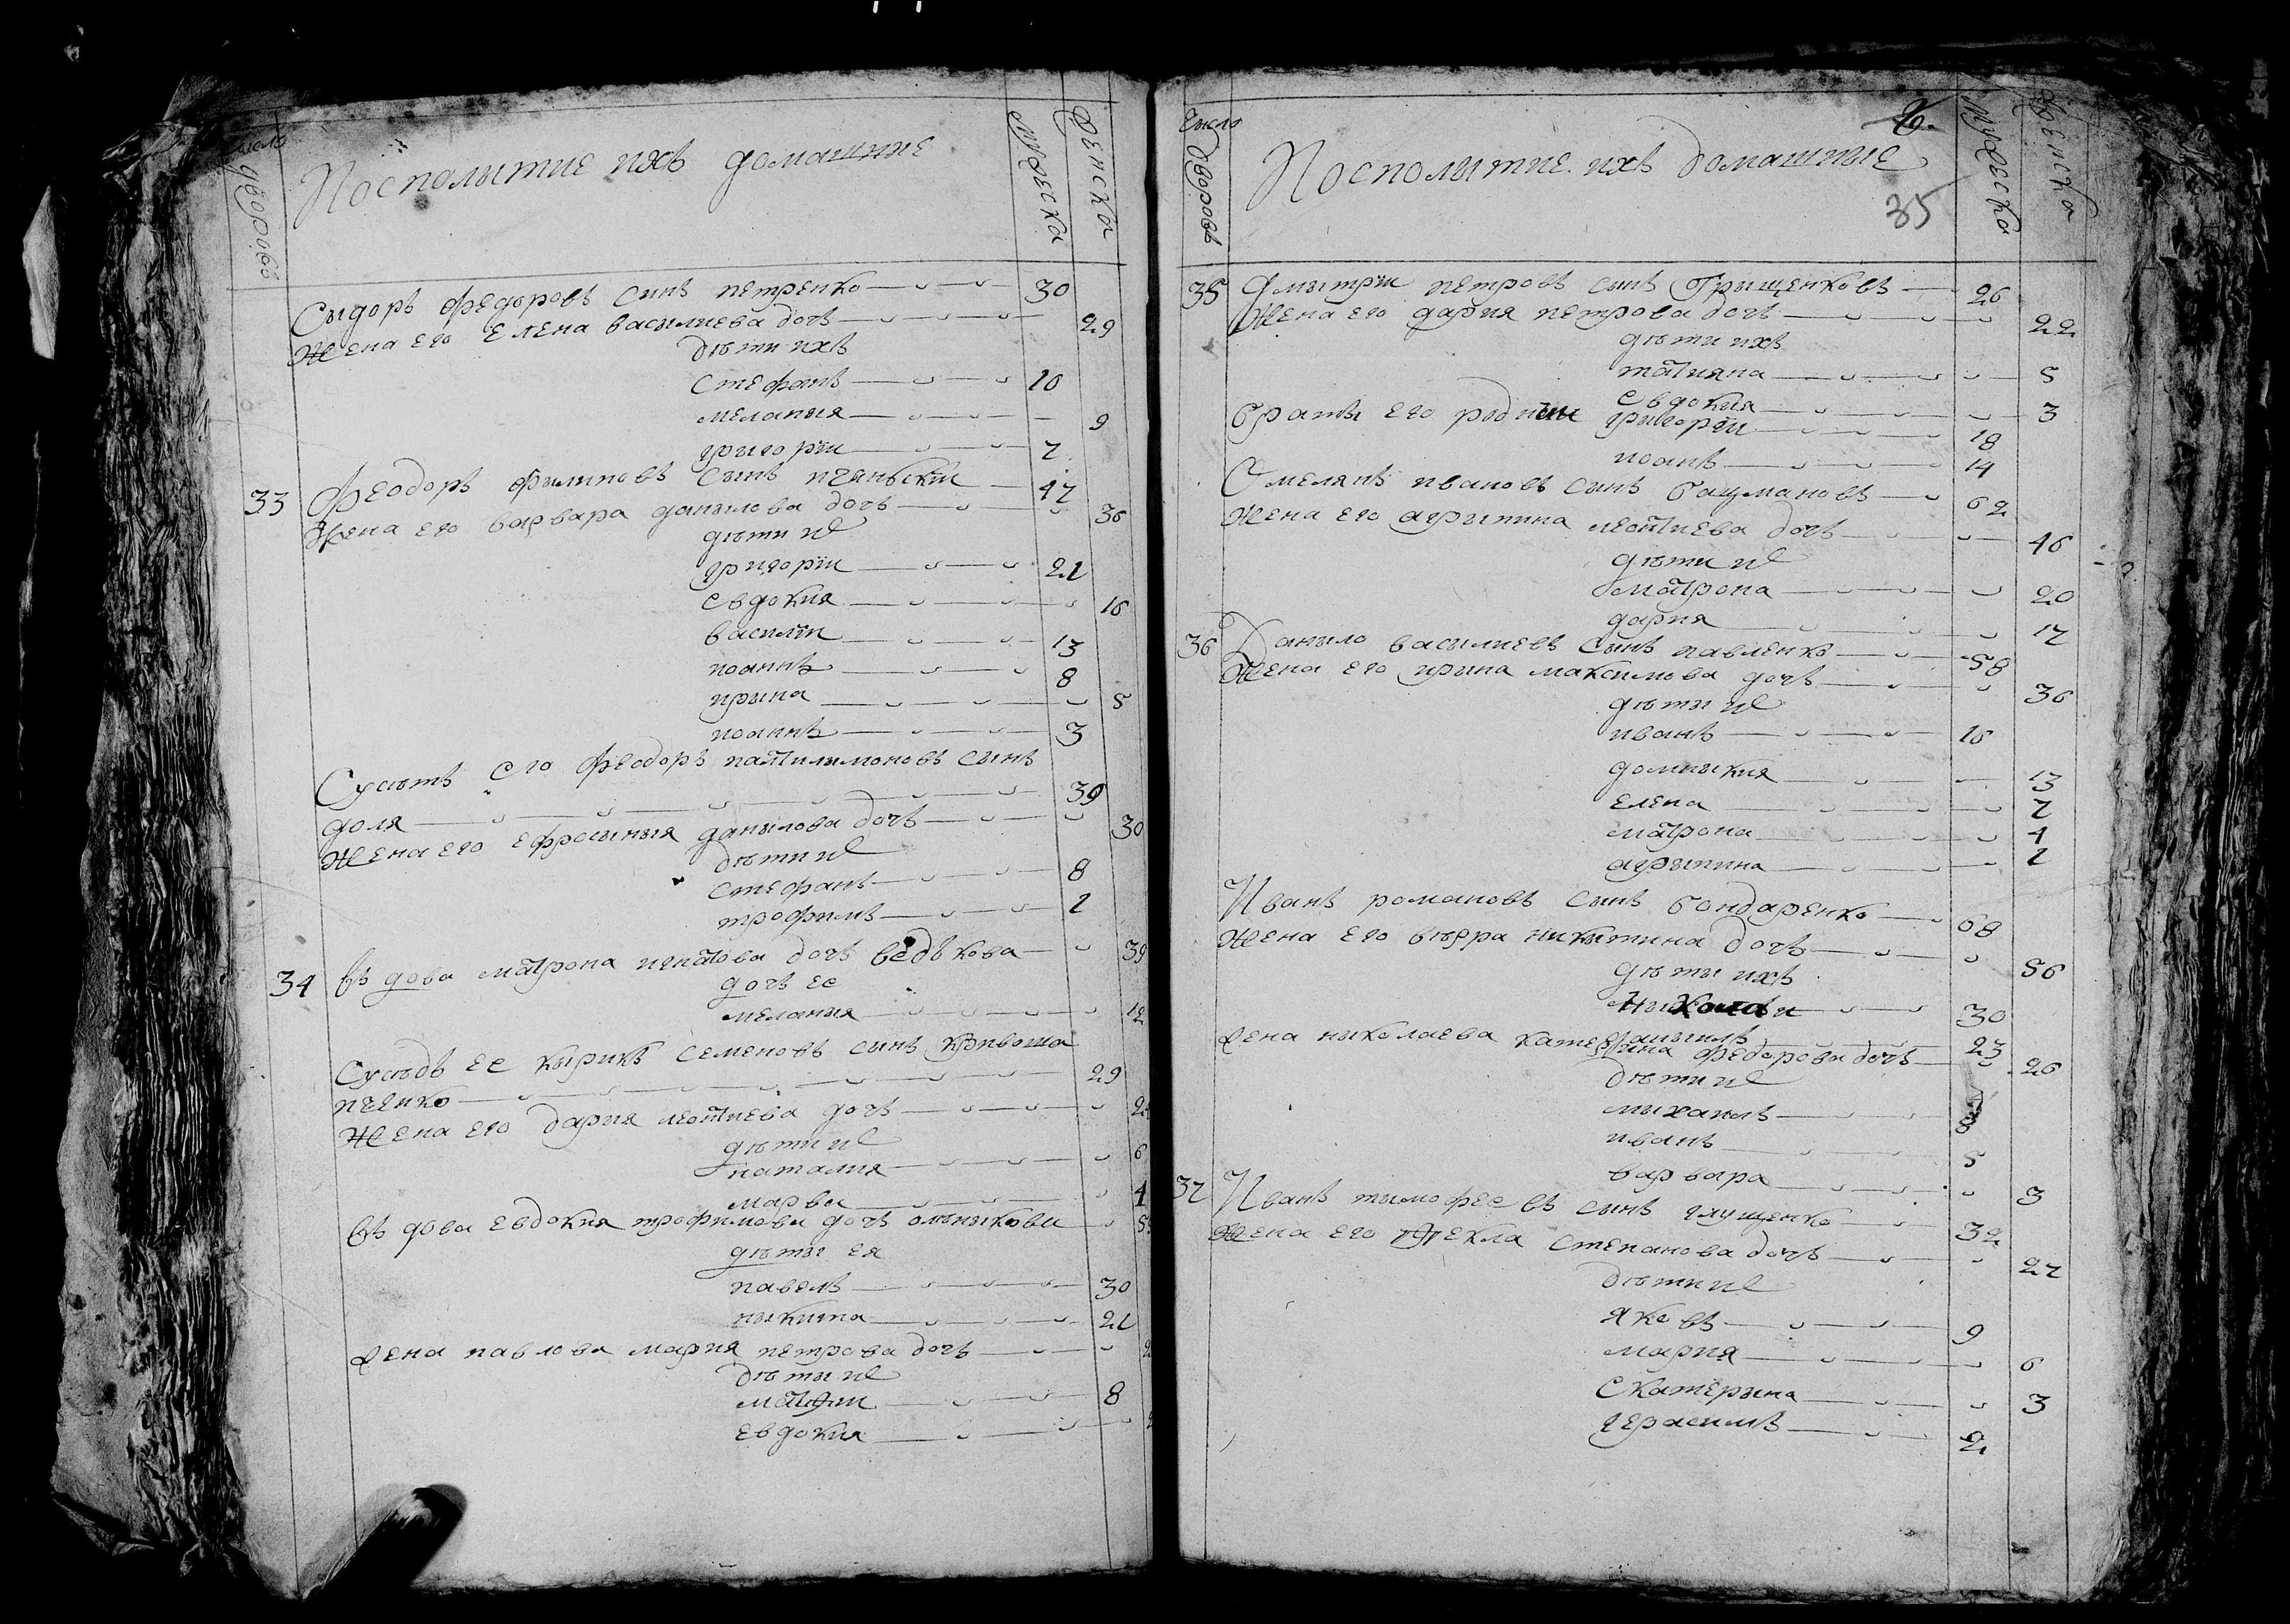 число дворовъ
Посполитие ихъ домашние
мужеска
женска
Сыдоръ федоровъ синъ петренко 30
Жена его Елена василиева дочъ 29
дѣти ихъ
стефанъ 10
мелания 9
григорій 7
33 Феодоръ филиповъ сынъ 47
Жена его варвара данылова дочъ 36
дѣти их
григорій 21
евдокия 16
василій 13
иоаннъ 8
ирина 5
иоаннъ 3
Сусѣтъ его феодоръ пантилимоновъ сынъ
доля 39
Жена его ефросиния данылова дочъ 30
дѣти их
стефанъ 8
трофимъ 1
34 Въдова матрона игнатова дочъ ведѣкова 39
дочъ ее
мелания 12
Сусѣдъ ее кырикъ семеновъ синъ кривоша
пченко 29
Жена его дария леонтиева дочъ
дѣти их
наталия 6
марва 4
Въдова евдокия трофимова дочъ олѣникова
дѣти ея
павелъ 30
никита 21
Жена павлова мария петрова дочъ
дѣти их
матфій 8
евдокия
число дворовъ
Посполитие ихъ домашние
35
мужеска
женска
35 Дмытрій петровъ синъ Грищенковъ 26
Жена его дария петрова дочъ 22
дѣти ихъ
татияна 5
евдокия 3
Брати его родніи григорій 18
иоанъ 14
Омелянъ ивановъ синъ бацмановъ 62
Жена его агрипина леонтиева дочъ 46
дѣти их
матрона 20
дария 17
36 Данило василиевъ сынъ павленко 58
Жена его ирина максимова дочъ 36
дѣти их
иванъ 16
домникия 13
елена 7
матрона 4
агрипина 1
Иванъ романовъ синъ бондаренко 68
Жена его вѣра никитина дочъ 56
дѣти ихъ
Николай 30
данилъ 23
Жена николаева катерина федорова дочъ 26
дѣти их
михаилъ 8
иванъ 5
варвара 3
37 Иванъ тимофеевъ синъ глущенко 32
Жена его текла степанова дочъ 27
дѣти их
яковъ 9
мария 6
екатерина 3
герасимъ 2